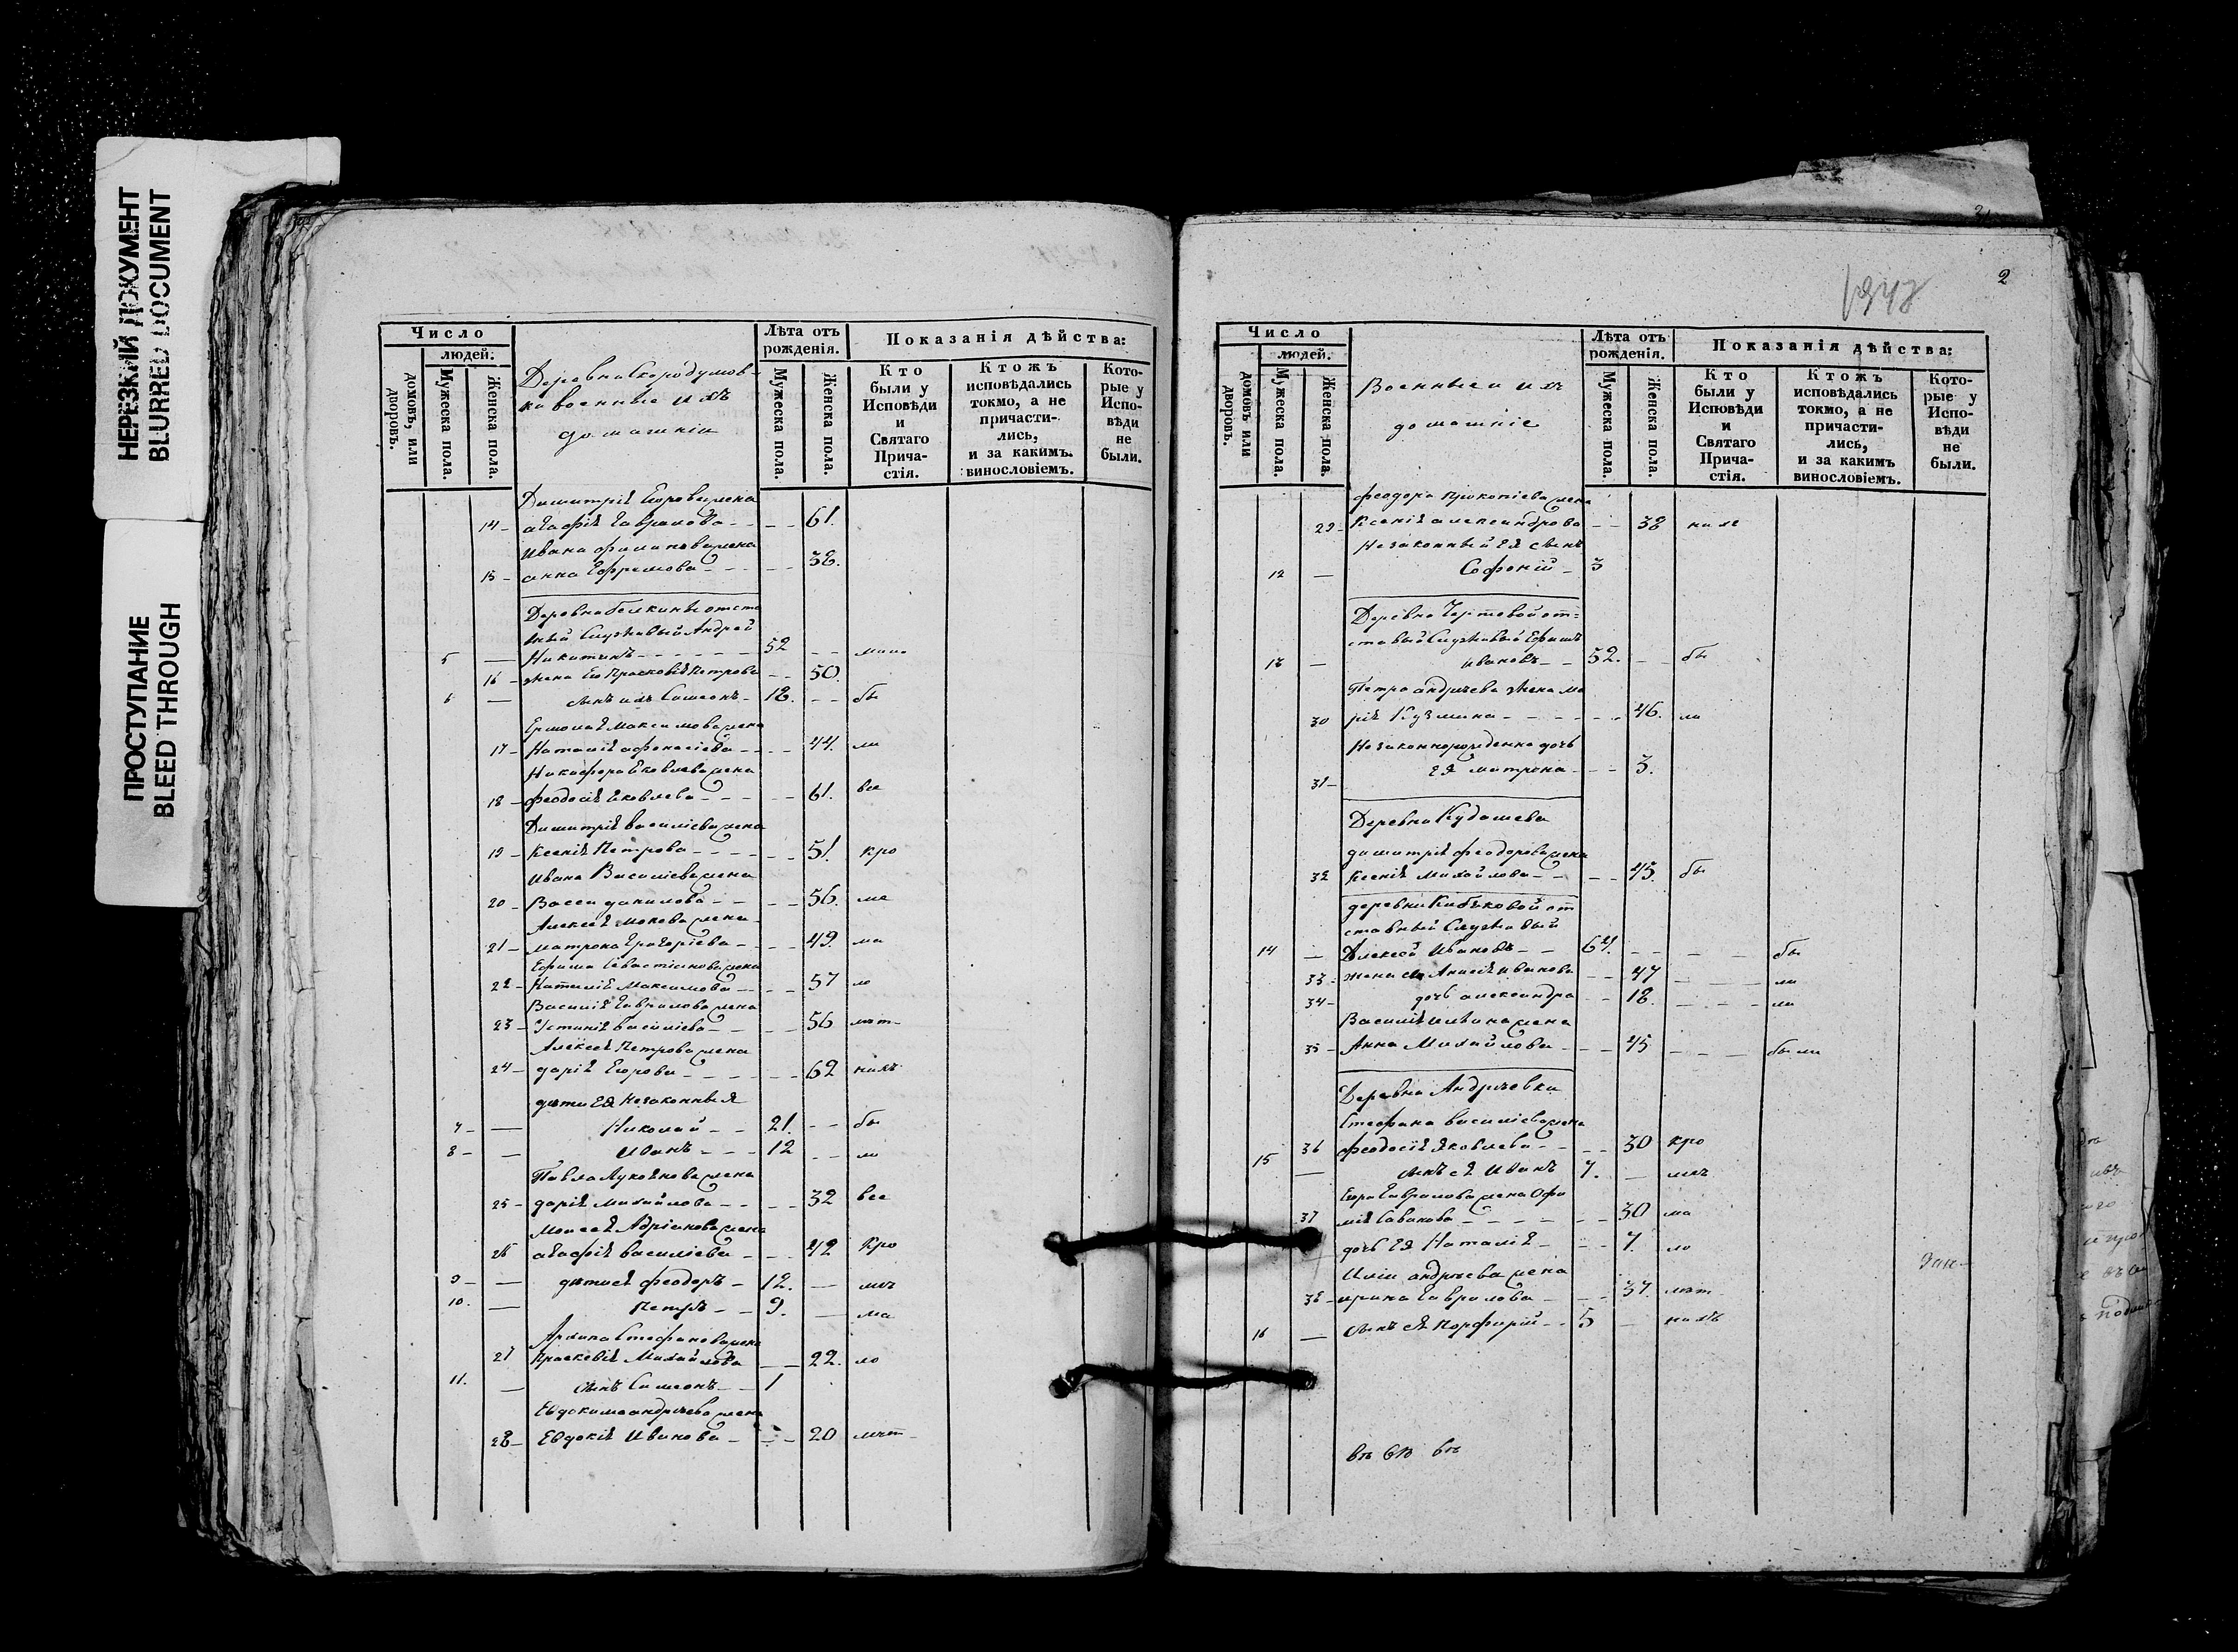 НЕРЕЗКИЙ ДОКУМЕНТ
BLURRED DOCUMENT
ПРОСТУПАНИЕ
BLEED THROUGH
Число
людей.
домовъ, или дворовъ.
Мужеска пола.
Женска пола.
Деревни Скородумов-
ки военные и ихъ
домашнiи
Лѣта отъ рожденiя.
Мужеска пола.
Женска пола.
Показанiя дѣйства:
Кто были у Исповѣди и Святаго Прича-стiя.
Ктожъ исповѣдались токмо, а не причасти-лись, и за какимъ. винословiемъ.
Кото-рые у Испо-вѣди не были.
Димитрiя Егорова жена
14 - агафiя Гаврилова - - - - 61.
Ивана филипова жена
15 - анна Ефремова - - - - 38.
Деревни белкины отста
ный Служивый Андрей
5 — Никитинъ - - - - 52 - -
16 - жена его Прасковiя Петрова - - 50.
6 — сынъ ихъ Симеонъ - 18. - - бы
Ермолая Максимова жена
17 - Наталiя афанасiева - - - - 44. ли
Никифора Яковлева жена
18 - феодосiя Яковлева - - - - 61. все
Димитрiя Василiева жена
19 - Ксенiя Петрова - - - - 51. кро
Ивана Василiева жена
20 - Васса данилова - - - - 56. ме
Алексея Мокева жена
21 - матрона Григорiева - - - - 49. ма
Ефима Севастiанова жена
22 - Наталiя Максимова - - - - 57 ло
Василiя Гаврилова жена
23 - Устинiя Василiева - - - - 56 лѣт-
Алексея Петрова жена
24 - дарiя Егорова - - - - 62 нихъ
дѣти Ея незаконныя
7 - — Николай - - 21. - - бы
8 - — Иванъ - - - 12 - - ли
Павла Лукоянова жена
25 - дарiя Михайлова - - - - 32 все
Моисея Адрiанова жена
26 агафiя Василiева - - - 42 кро
9 - — дѣти ея феодоръ - 12. — мѣ
10. — Петръ - - 9. — ма
Стефанова жена
27 Прасковiя Михайлова — 22. ло
11. — сынъ Симеонъ - - 1
Евдокима андрѣева жена
28 - Евдокiя Иванова - - - - 20 лѣт-
2
Число
людей.
домовъ или дворовъ.
Мужеска пола.
Женска пола.
Военные и ихъ
домашнiе
Лѣта отъ рожденiя.
Мужеска пола.
Женска пола.
Показанiя дѣйства:
Кто были у Исповѣди и Святаго Прича-стiя.
Ктожъ исповѣдались токмо, а не причасти-лись, и за какимъ винословiемъ.
Кото-рые у Испо-вѣди не были.
феодора Прокопiева жена
29 - Ксенiя александрова - - 38
Незаконный Ея сынъ
12 — Софонiй - 3
Деревни Чертовой от=
ставный Служивый Ефимъ
13 — Ивановъ - - 52. - - бы
Петра андрѣева жена ма
30 рiя Кузмина - - - - 46. ли
Незаконнорожденна дочь
31 - Ея матрона - - - 3.
Деревни Кудашева
димитрiя феодорова жена
32 Ксенiя Михайлова - - - - 45. бы
деревни Кибяковой от
ставный Служивый
14 — Алексей Ивановъ - - 64. - - - бы
33 - жена его Анисiя Иванова - - 47 - - - ли
34 - дочь александра - - 18. - - - ли
Василiя жена
35 - Анна Михайлова - - - 45 - - - были
Деревни Андрѣевки
Стефана Василiева жена
36 феодосiя Яковлева - - - - 30 кро
15 — сынъ ея Иванъ 7. — мѣ
Егора Гаврилова жена Офи
37 мiя Савинова - - - - 30 ма
дочь Ея Наталiя - - - 7. ло
Илiи андрѣева жена
38 - ирина Гаврилова - - - 37. лѣт
16 — сынъ ея Порфирiй - - 5 — нихъ